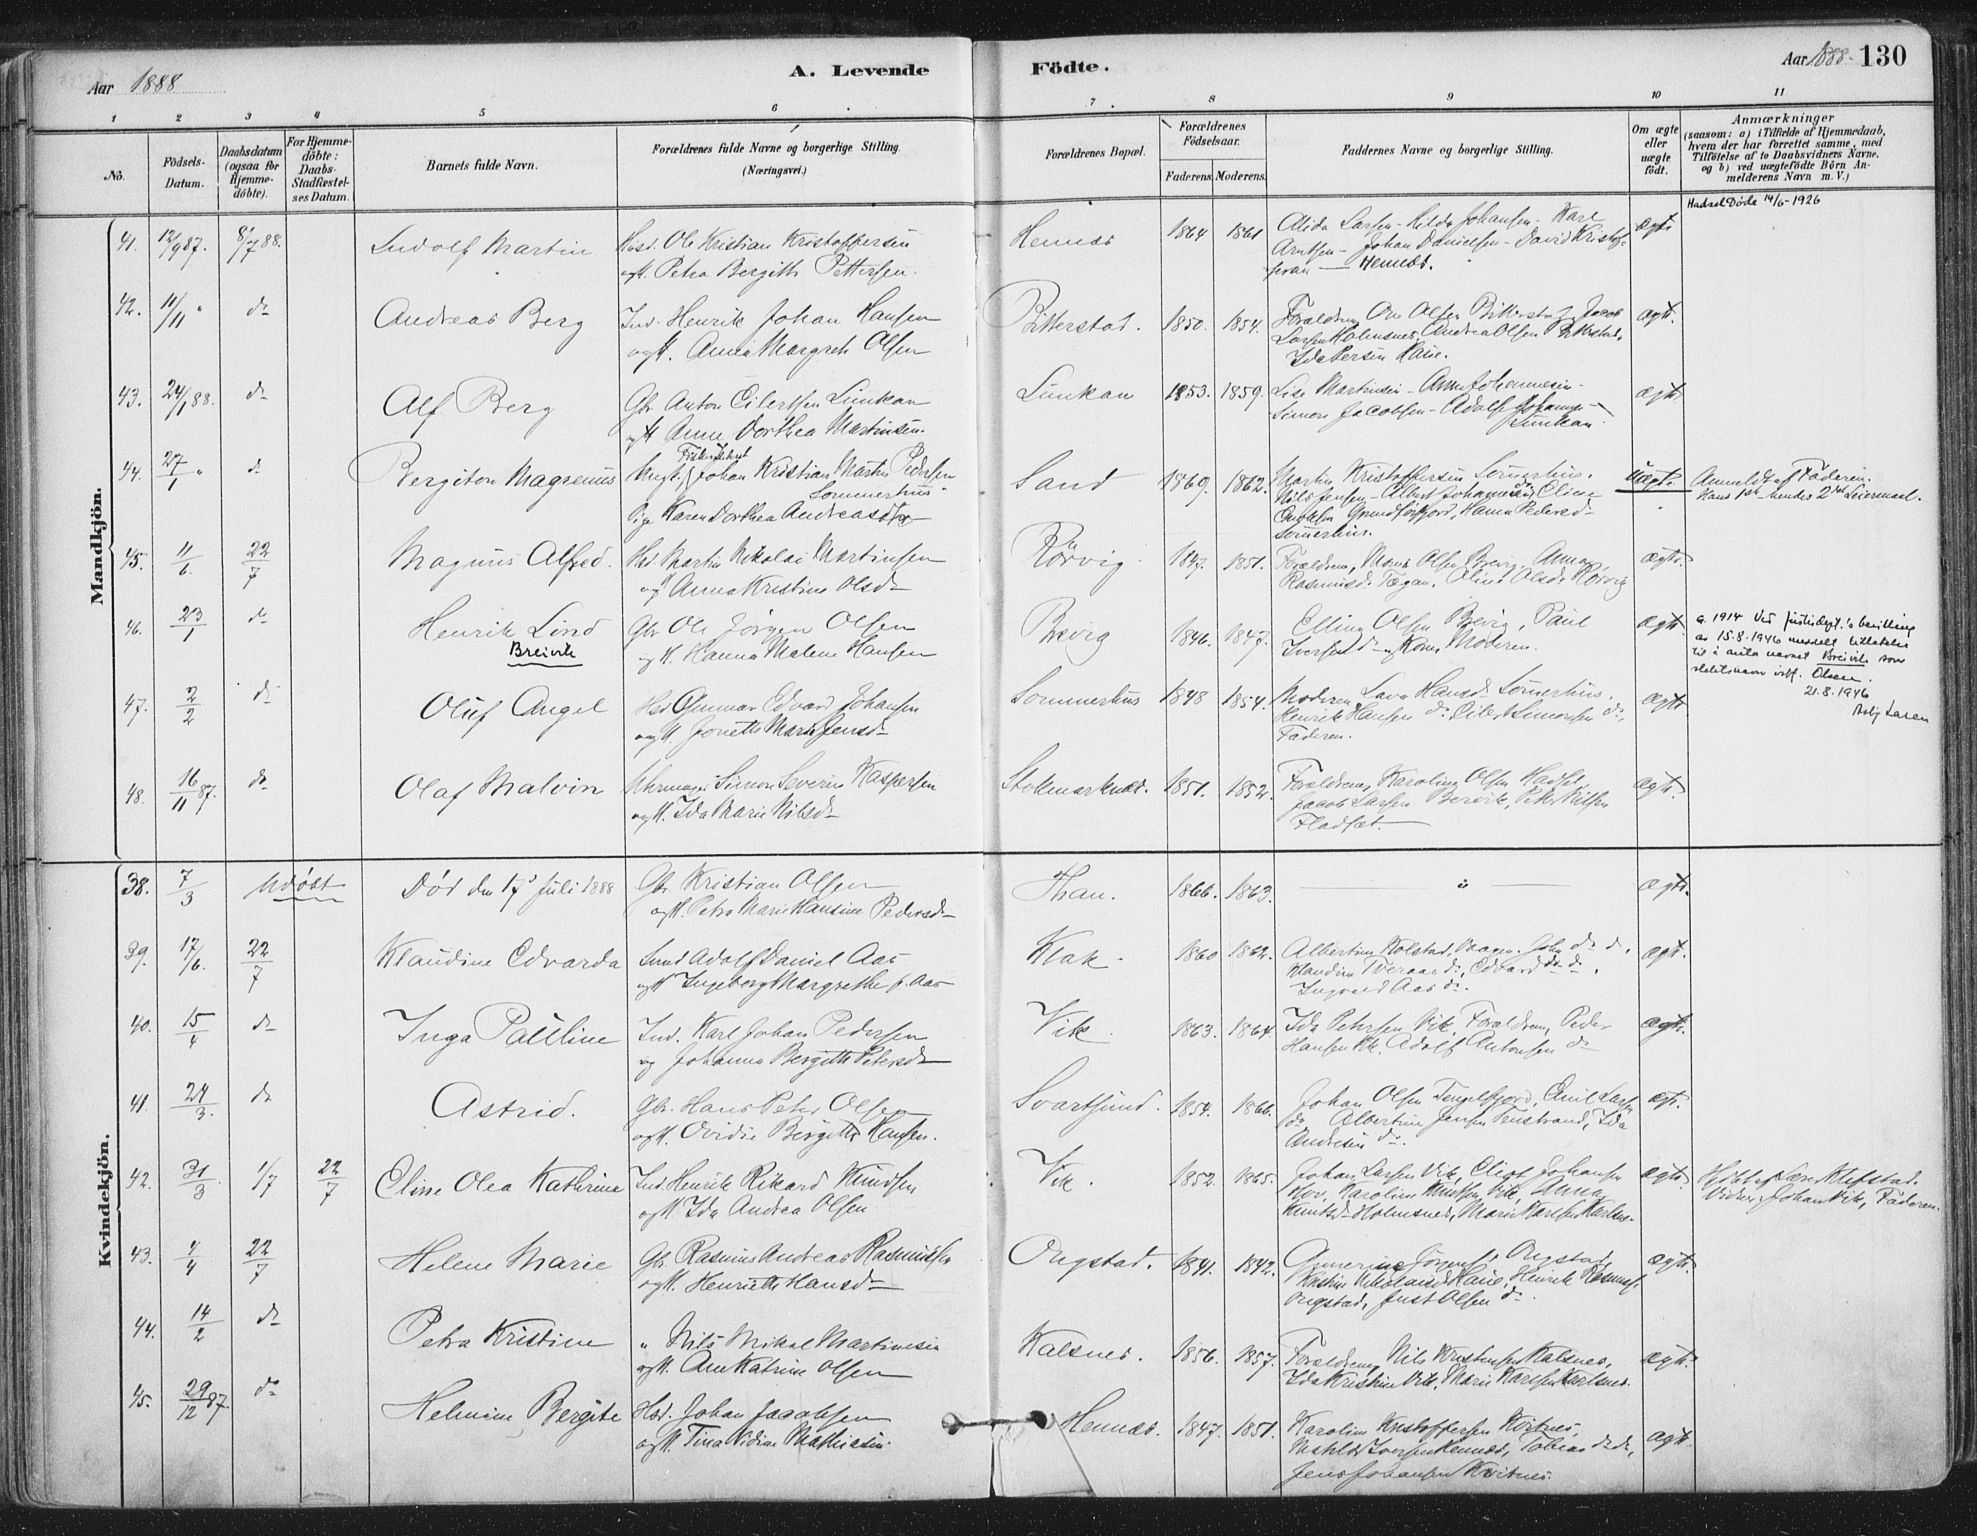 Aar 1888
A. Levende Födte.
Aar 1888 130
1 2 3 4 5 6 7 8 9 10 11
No.
Födsels-Datum.
Daabsdatum (ogsaa for Hjemme-döbte).
For Hjemme-döbte: Daabs-Stadfæstel-ses Datum.
Barnets fulde Navn.
Forældrenes fulde Navne og borgerlige Stilling.
(Næringsvei.)
Forældrenes Bopæl.
Forældrenes Födselsaar.
Faderens. Moderens.
Faddernes Navne og borgerlige Stilling.
Om ægte eller uægte födt.
Anmærkninger
(saasom: a) i Tilfælde af Hjemmedaab,
hvem der har forrettet samme, med
Tilföielse af to Daabsvidners Navne,
og b) ved uægtefödte Börn An-
melderens Navn m. V.)
Mandkjön.
41. 12/9 87. 8/7 88. Ludolf Martin
Ole Kristian Kristoffersen
ogh. Petra Bergithe Pettersen.
Hennes 1864 1861
Alida Larsen - Hilda Johansen - Karl
Arntsen - Johan Danielsen - David Kristof-
fersen — Hennes.
ægte
Hadsel Døde 14/6-1926
42. 11/11 " do Andreas Berg
Ind. Henrik Johan Hansen
ogh. Anna Margreth Olsen
Bitterstad. 1850. 1854.
Forældrene, Ole Olsen Bitterstad, Jacob
Larsen Holmsnes, Andrea Olsen Bitterstad,
Ida Persen Haue.
ægte.
43. 24/1 88. do Alf Berg
Gbr Anton Eilertsen Lunkan
ogh Anne Dorthea Martinsen.
Lunkan 1853. 1859.
Lise Martinsen - Anne Johannesen -
Simon Jacobsen - Adolf Johansen
Lunkan.
ægte
44. 27/1 " do Bergiton Magnus
Ungk. Johan Kristian Martin Pedersen
Sommerhus
Pige Karen Dorthea Andreasdtr
Sand 1869. 1862.
Martin Kristoffersen Sommerhus,
Nils Jensen - Albert Johannesen do, Eline
Grundforfjord, Hanna Pedersd-
Sommerhus.
uægte.
Anmeldt af Faderen.
Hans 1ste hendes 2det Leiermaal.
45. 11/6 22/7 Magnus Alfred.
Hd. Martin Nikolai Martinsen
og Anna Kristine Olsd-
Rørvig. 1851.
Forældrene, Mons Olsen Breivig, Anna
Rasmusd. Tøgan, Oline Olsd. Rørvig
ægte.
46. 23/1 do Henrik Lind
Breivik
Gbr Ole Jørgen Olsen
og h. Hanna Malene Hansen
Breivig 1846. 1847.
Elling Olsen Breivig, Paul
Iversen do og Kone, Moderen.
ægte
a. 1914 Ved justisdept.'s bevilling
av 15.8.1946 meddelt tillatelse
til å anta navnet Breivik som
slektsnavn istf. Olsen.
21.8.1946
47. 2/2 do Oluf Angel
Hd Gunnar Edvard Johansen
ogh. Jonette Marie Jensd-
Sommerhus 1848 1854.
Moderen, Lava Hansd. Sommerhus.
Henrik Hansen do. Eilert Simonsen do,
Faderen.
ægte
48. 16/11 87. do Olaf Malvin
Uhrmager Simon Severin Kaspersen
ogh. Ida Marie Nilsd-
Stokmarknes. 1851. 1852.
Forældrene, Karoline Olsen Hadsel,
Jacob Larsen Breivik, Peter Nilsen
Fladset.
ægte.
Kvindekjön.
38. 7/3 Udøbt Død den 17de Juli 1888
Gbr Kristian Olsen
ogh. Petra Marie Hansine Pedersd-
Than. 1866. 1863. — " — ægte.
39. 17/6. 22/7 Klaudine Edvarda
Adolf Daniel Aas
ogh Ingeborg Margrethe f. Aas
Klak. 1860 1862.
Albertine Kolstad, Vaagen. John do do,
Klaudine Tveraas do, Edvard do do,
Ingvald Aas do.
ægte.
40. 15/4 do Inga Pauline
Ind. Karl Johan Pedersen
og Johanna Bergitte Petersd-
Vik. 1863. 1864.
Ida Petersen Vik, Forældrene, Peder
Hansen Vik, Adolf Antonsen do
ægte.
41. 24/3. do Astrid.
Gbr. Hans Peter Olsen
ogh. Ovidie Bergitte Hansen.
Svartsund. 1854. 1866.
Johan Olsen Tengelfjord, Emil Larsen
do Albertine Jensen Trustrand, Ida
Andresen do.
ægte.
42. 31/3 1/7 22/7 Eline Olea Kathrine
Ind. Henrik Rikard Knudsen
ogh Ida Andrea Olsen.
Vik. 1852. 1865.
Johan Larsen Vik, Eliot Johansen
Hov, Karoline Knudsen Vik, Anna
Knutsd- Holmsnes, Marie Karlsen Karlsnes.
ægte.
Hjdbt af Lærer Klefstad.
Vidner: Johan Vik, Faderen.
43. 4/4 22/7 Helene Marie
Gbr. Rasmus Andreas Rasmussen
ogh. Henriette Hansd-
Ongstad. 1841. 1842.
Jørgens. Ongstad,
Kristine Nikolaisd. Haue, Henrik Rasmuss.
Ongstad, Just Olsen do.
ægte.
44. 14/2 do Petra Kristine
" Nils Mikal Martinsen
ogh. Ane Katrine Olsen
Kalsnes. 1856. 1857.
Forældrene, Nils Kristensen Kalsnes,
Ida Kristine Vik, Marie Karlsen Karlsnes.
ægte.
45. 29/12 87. do Helmine Bergite
Hd. Johan Jacobsen
ogh. Tina Vidine Mathiasen.
Hennes. 1847. 1851.
Karoline Kristoffersen Kvitnes,
Mathilde Iversen Hennes, Tobias do do,
Jens Johansen Kvitnes.
ægte.